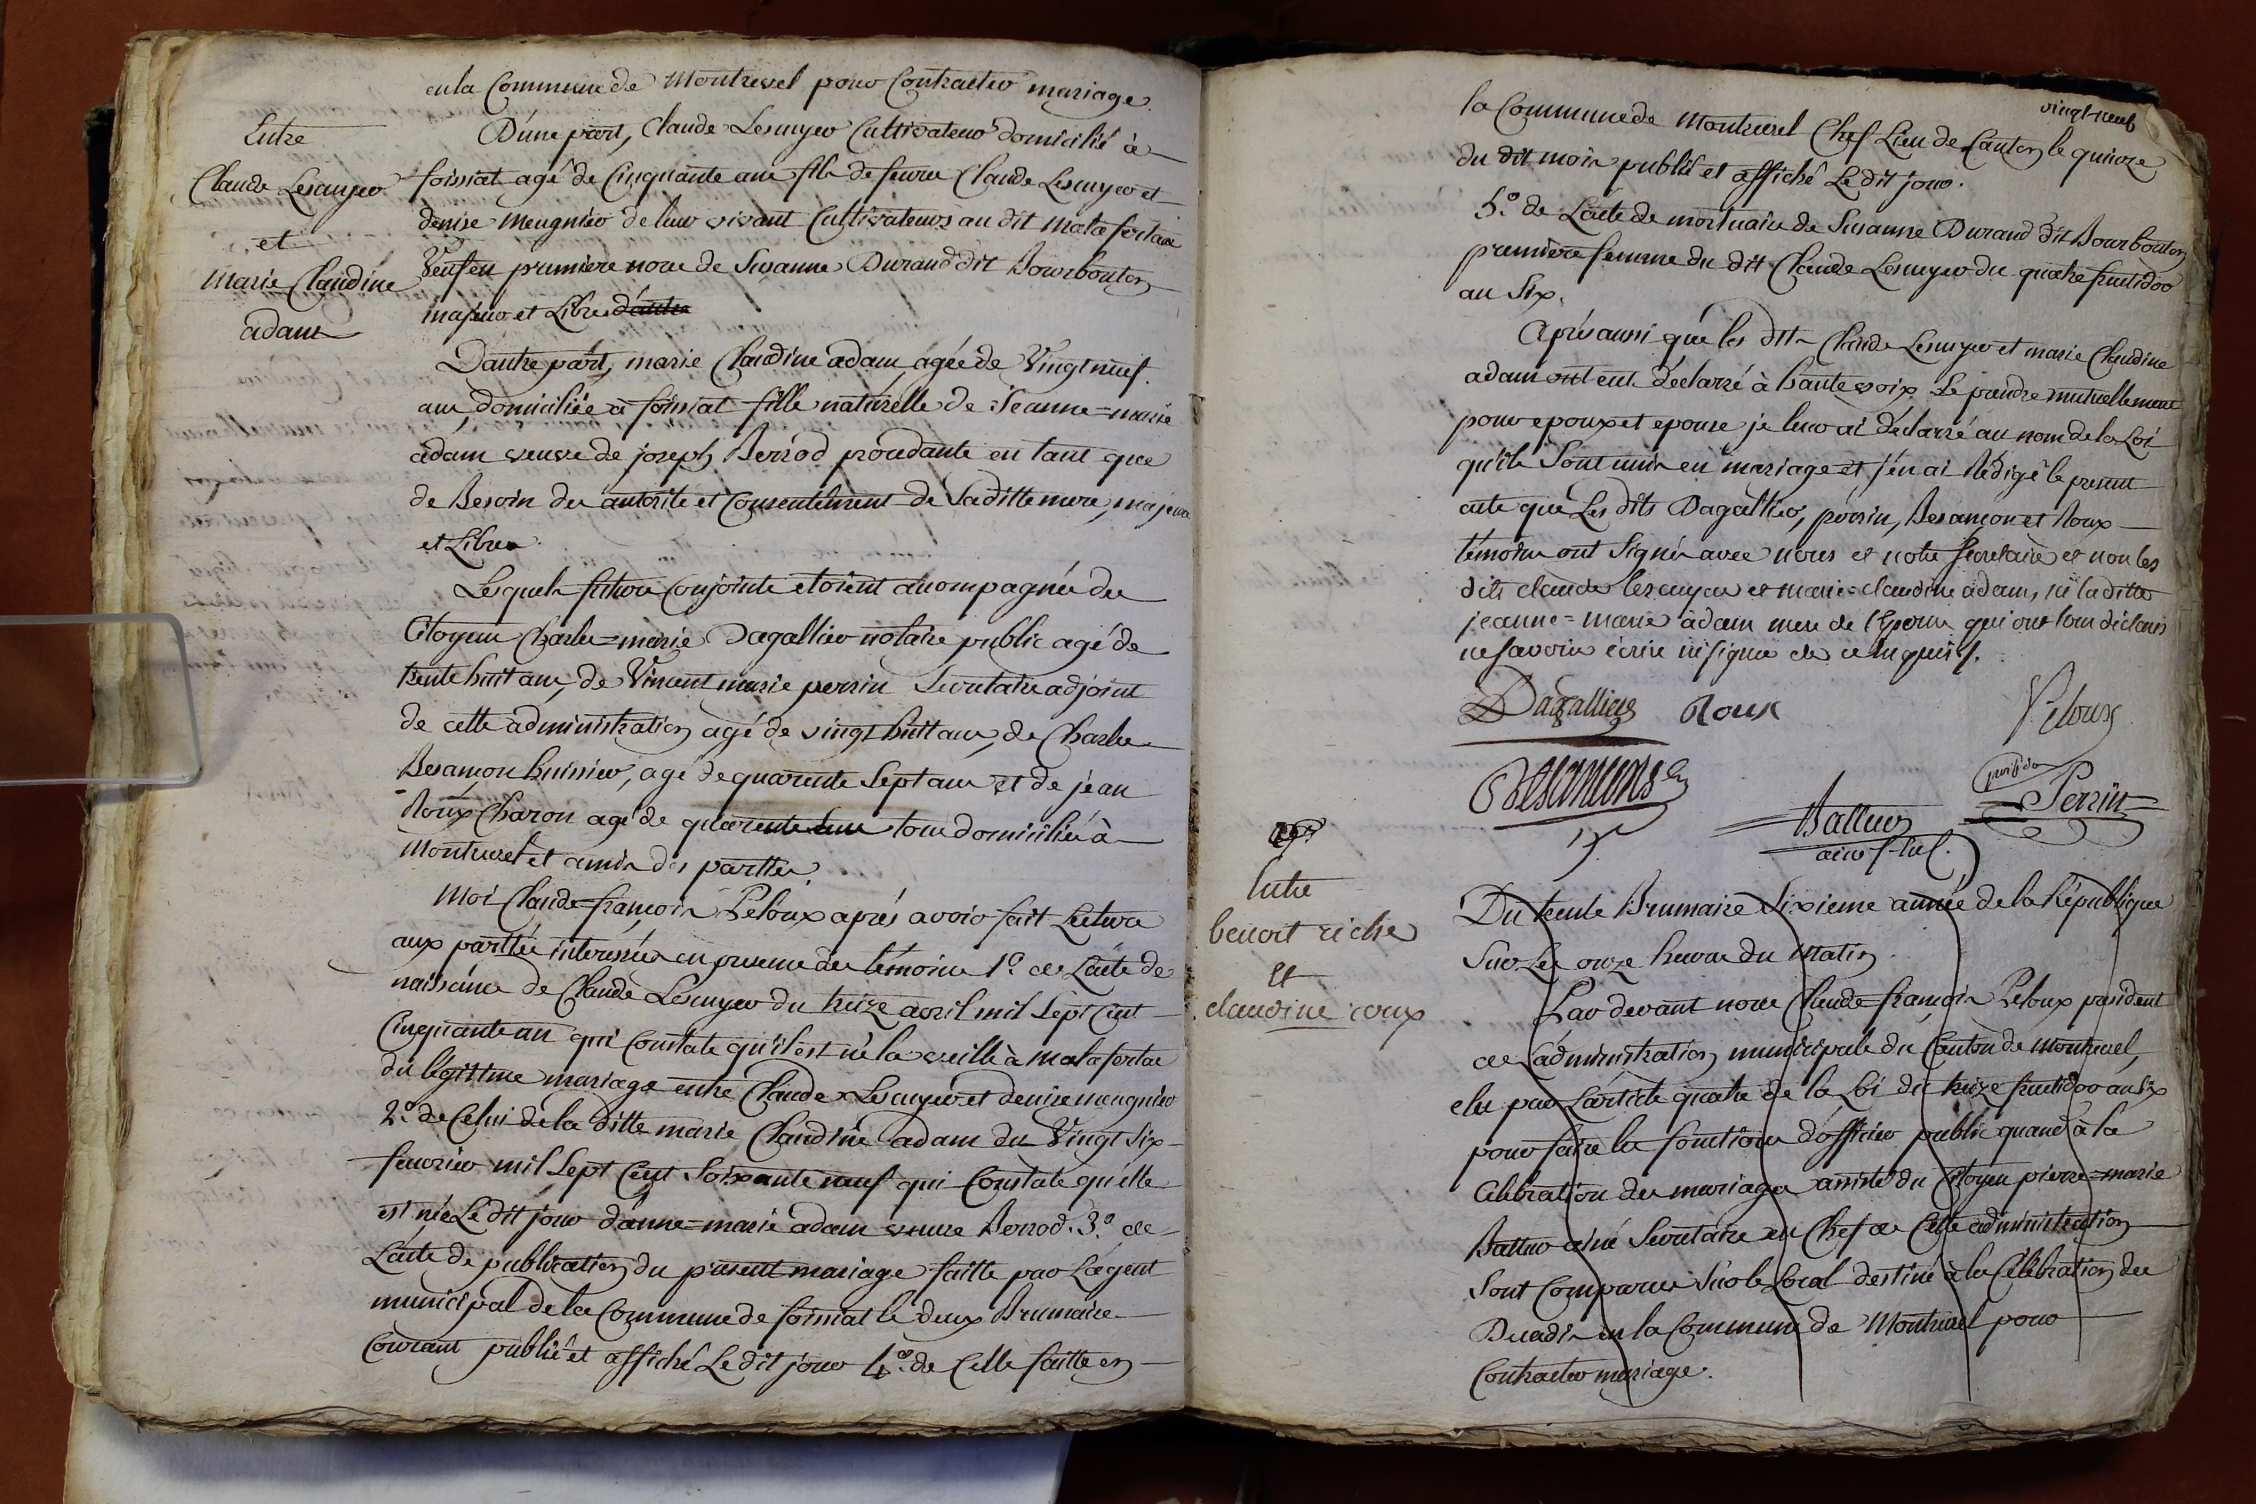 en la Commune de Montrevel pour Contracter mariage.
Entre
Claude Lescuyer
et
Marie Claudine
adam
D'une part, Claude Lescuyer Cultivateur domicilié à
foissiat agé de Cinquante ans fils de feu Claude Lescuyer et
denise meugnier de leur vivant Cultivateurs au dit Malafertaz
Veuf en premiere noce de Susanne Durand dit Bourbouton
majeur et Libre d'autre
D'autre part, marie Claudine adam, agée de Vingt neuf
ans, domiciliée à foissiat fille naturelle de Jeanne=marie
adam veuve de joseph Berrod procedante en tant que
de Besoin des autorité et Consentement de Saditte mere, majeure
et Libre.
Lesquels futurs Conjoints etoient acompagnés des
Citoyens Charles=marie Dagallier notaire public agé de
trente huit ans, de Vincent marie perrin Secretaire adjoint
de cette administration agé de vingt huit ans, de Charles
Besançon huissier, agé de quarente Sept ans et de jean
Roux Charon agé de quarente ans tous domiciliés à
Montrevel et amis des partties.
Moi Claude=françois Peloux après avoir fait Lecture
aux parttés interessées en presence des témoins 1.º de L'acte de
naissance de Claude Lescuyer du treize avril mil Sept Cent
Cinquante un qui Constate qu'il est né la veille à Malafertaz
du légittime mariage entre Claude Lescuyer et denise meugnier
2.º de Celui de la ditte marie Claudine adam du Vingt Six
fevrier mil Sept Cent Soixante neuf qui Constate qu'elle
est née Le dit jour d'anne=marie adam veuve Berrod. 3.º de
L'acte de publication du présent mariage faitte par L'agent
municipal de la Commune de foissiat le deux Brumaire
Courant publié et affiché Le dit jour 4.º de Celle faitte en
vingt-neuf
la Commune de Montrevel Chef Lieu de Canton le quinze
du dit mois publié et affiché Le dit jour.
5.º de L'acte de mortuaire de Susanne Durand dit Bourbouton
premiere femme du dit Claude Lescuyer du quatre fructidor
an Six.
Après aussi que les dits Claude Lescuyer et marie Claudine
adam ont eut déclarré à haute voix Se prendre mutuellement
pour epoux et epouse je leur ai déclarré au nom de la Loi
qu'ils Sont unis en mariage et j'en ai Rédigé le present
acte que Les dits Dagallier, perrin, Besançon et Roux
témoins ont Signés avec nous et notre Secretaire et non les
dits claude lescuyer et marie=claudine adam, ni la ditte
jeanne=marie adam mere de l'Epouse qui ont tous déclarés
ne savoir écrire ni signer de ce enquis f.
Dagallier Roux Peloux
président
Besancons
Perrin
Balluer
ainé
Entre
benoit riche
et
claudine roux
Du trente Brumaire Sixieme année de la République
Sur Les onze heures du Matin.
Par devant nous Claude=françois Peloux president
de L'administration municipale du Canton de Montrevel,
elu par L'article quatre de la Loi du treize fructidor an Six
pour faire les fonctions d'officier public quand à la
Celebration des mariages assisté du Citoyen pierre=marie
Balluer ainé Secretaire en Chef de Cette administration
Sont Comparus Sur le Local destiné à la Célébration des
Decadis en la Commune de Montrevel pour
Contracter mariage.